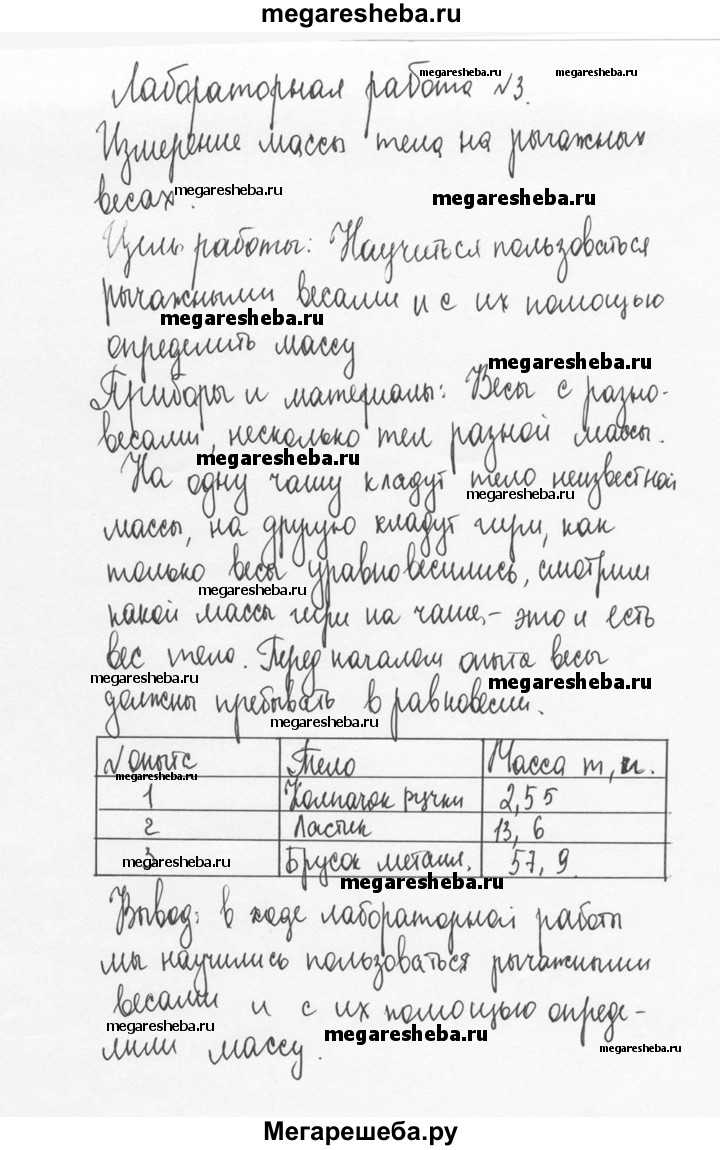 megaresheba.ru
Лабораторная работа №3.
megaresheba.ru megaresheba.ru
Измерение массы тела на рычажных
весах.
megaresheba.ru megaresheba.ru
Цель работы: Научиться пользоваться
рычажными весами и с их помощью
megaresheba.ru
определить массу
megaresheba.ru
Приборы и материалы: Весы с разно-
весами, несколько тел разной массы.
megaresheba.ru
На одну чашу кладут тело неизвестной
megaresheba.ru
массы, на другую кладут гири, как
только весы уравновесились, смотрим
megaresheba.ru
какой массы гири на чаше, - это и есть
вес тело. Перед началом опыта весы
megaresheba.ru megaresheba.ru
должны пребывать в равновесии.
megaresheba.ru
№ опыта Тело Масса m, г.
megaresheba.ru
1 Колпачок ручки 2,55
2 Ластик 13,6
3 Брусок металл. 57,9
megaresheba.ru
megaresheba.ru
Вывод: в ходе лабораторной работы
мы научились пользоваться рычажными
весами и с их помощью опреде-
megaresheba.ru megaresheba.ru
лили массу.
megaresheba.ru
Мегарешеба.ру